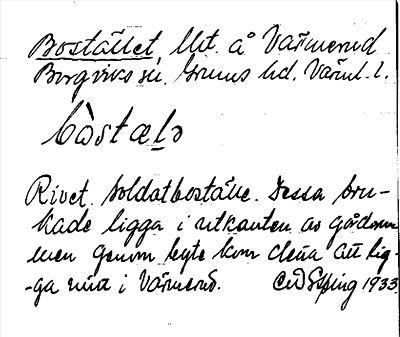 Bostället, Ut. å Värmerud
Borgviks sn. Grums hd. Värml. l.
bòstælə
Rivet soldatboställe. Dessa bru-
kade ligga i utkanten av gården
men genom byte kom detta att lig-
-ga nära i Värmerud. Esping 1933.